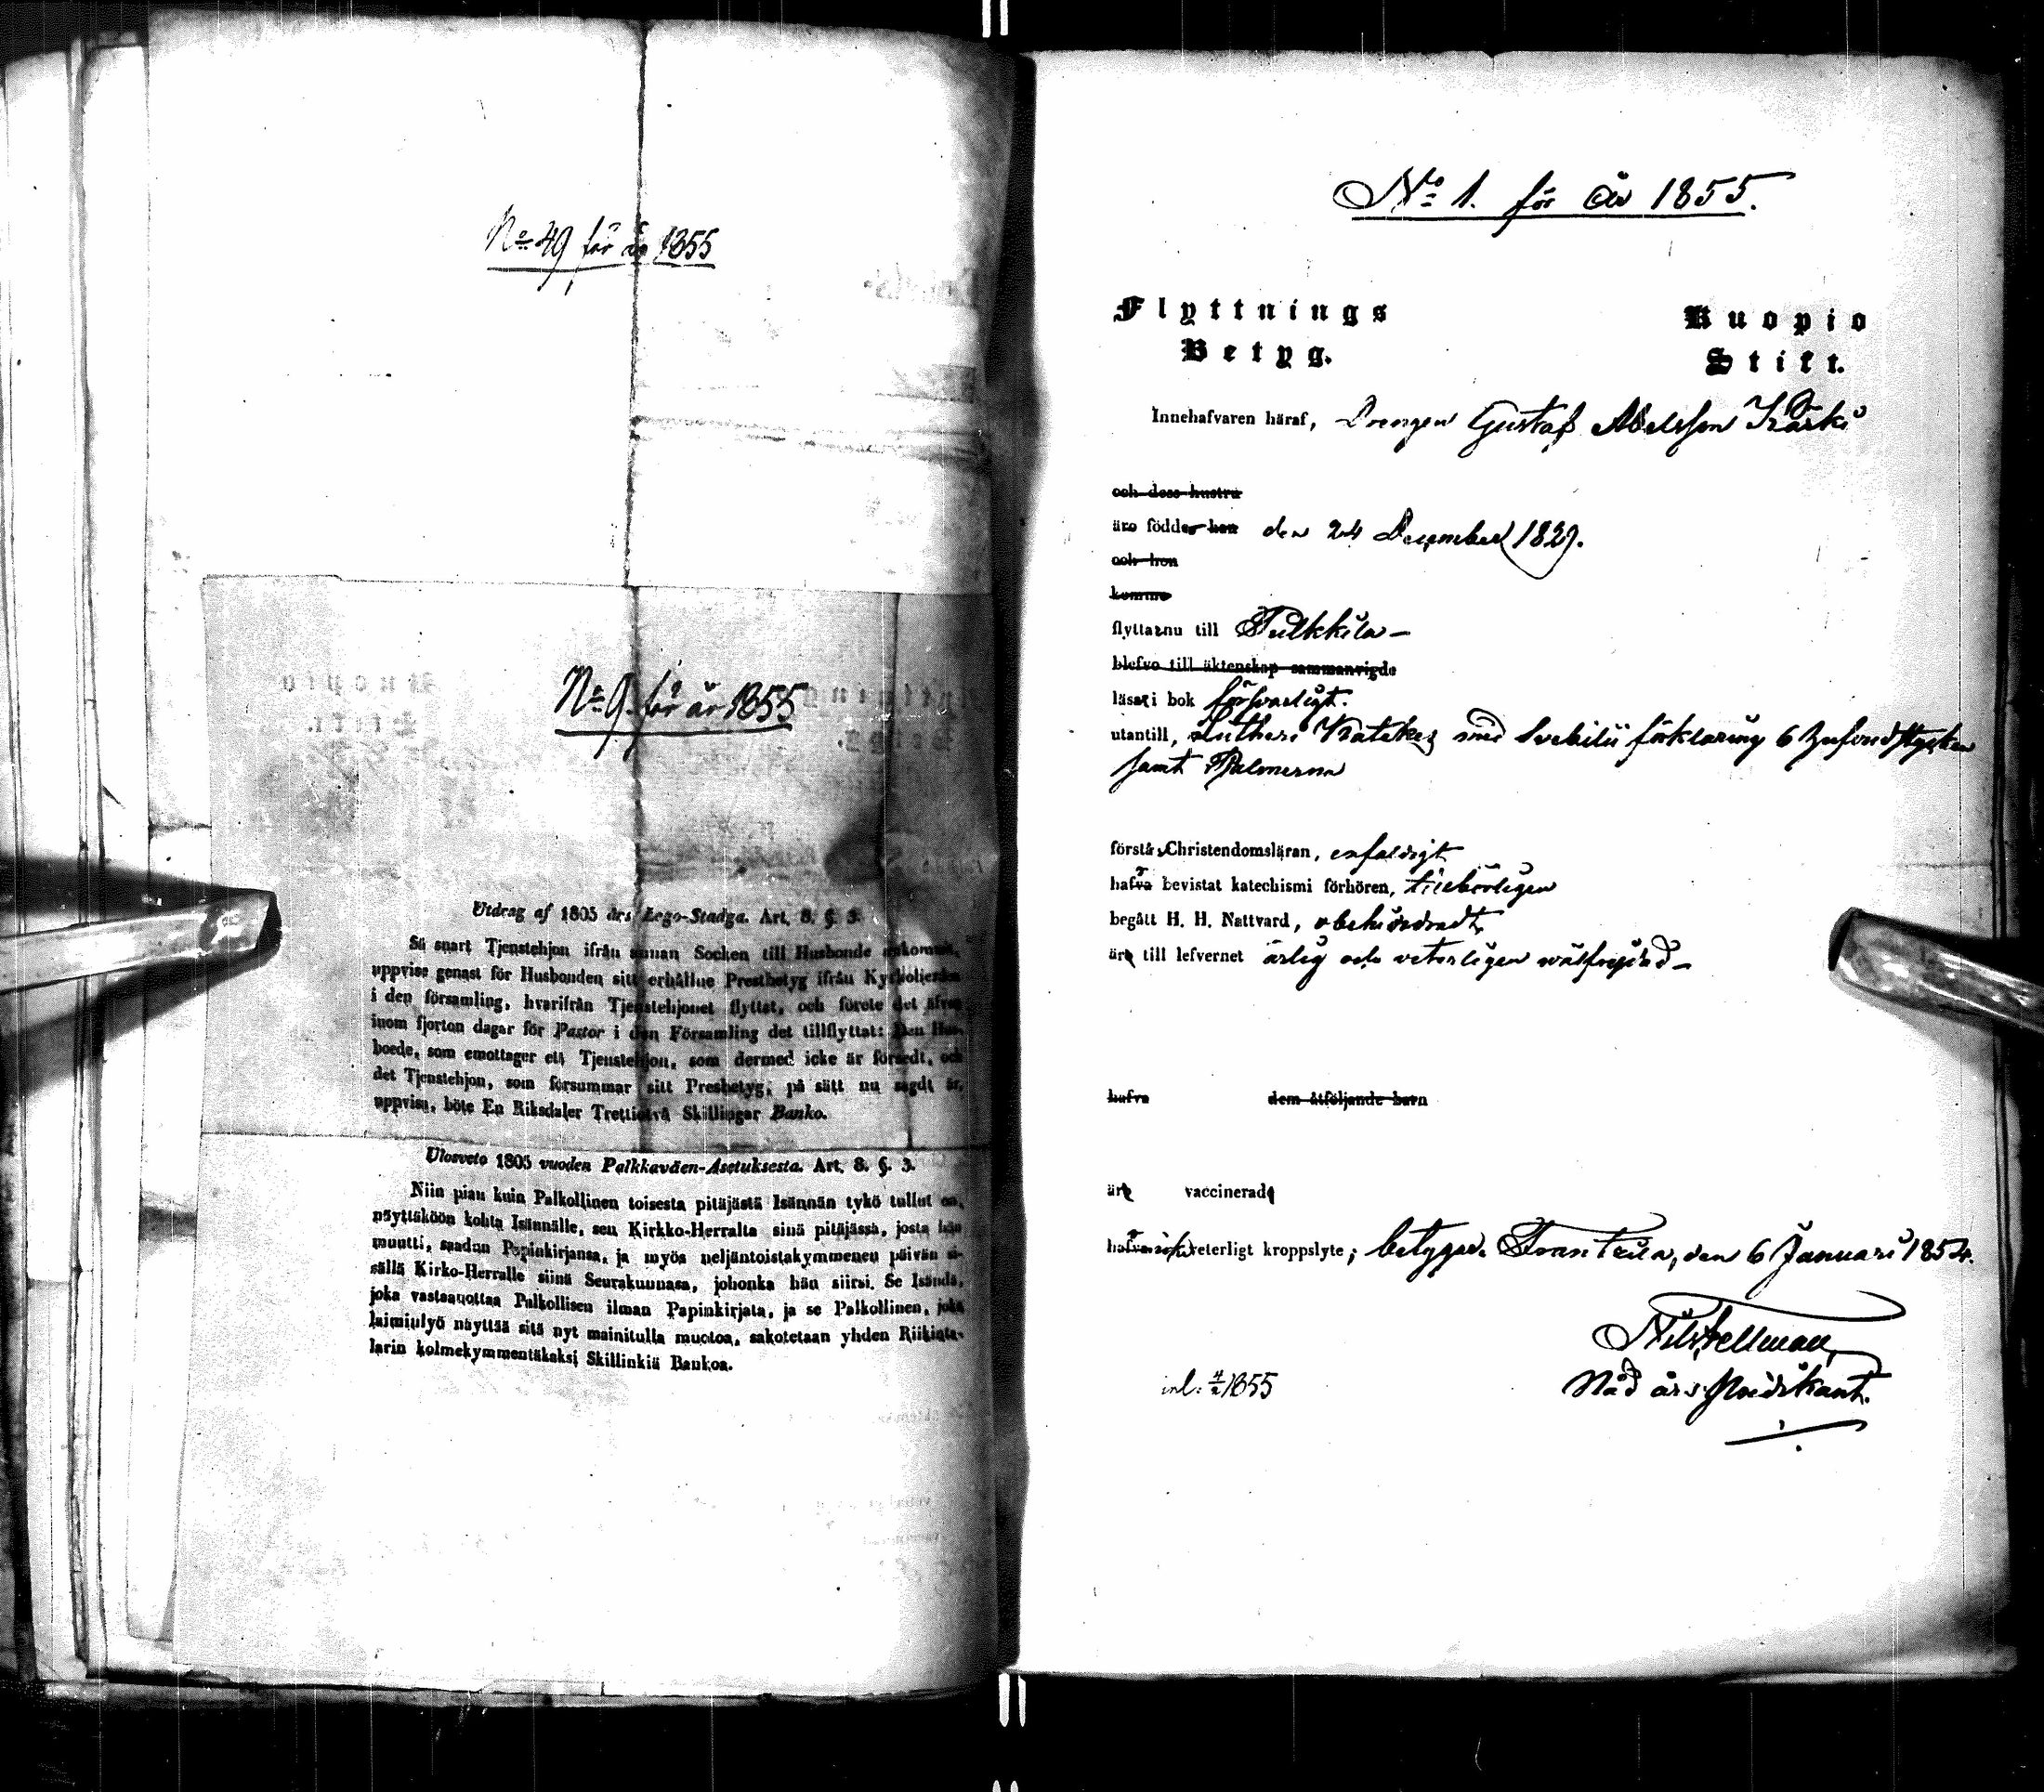 No 49 för år 1855
No 9. för år 1855
Utdrag af 1805 års Lego-Stadga. Art. 8. §. 3.
Så snart Tjenstehjon ifrån annan Socken till Husbonde ankommit,
uppvise genast för Husbonden sitt erhållne Prestbetyg ifrån Kyrkoherden
i den församling, hvarifrån Tjenstehjonet flyttat, och förete det äfven
inom fjorton dagar för Pastor i den Församling det tillflyttat: Den Hus-
boede, som emottager ett Tjenstehjon, som dermed icke är försedt, och
det Tjenstehjon, som försummar sitt Presbetyg, på sätt nu sagdt är,
uppvisa, böte En Riksdaler Trettiotvå Skillingar Banko.
Ulosveto 1805 vuoden Palkkaväen-Asetuksesta. Art. 8. §. 3.
Niin pian kuin Palkollinen toisesta pitäjästä Isännän tykö tullut on,
näyttäköön kohta Isännälle, sen Kirkko-Herralta sinä pitäjässä, josta hän
muutti, saadun Papinkirjansa, ja myös neljäntoistakymmenen päivän si-
sällä Kirko-Herralle siinä Seurakunnasa, johonka hän siirsi. Se Isändä,
joka vastaanottaa Palkollisen ilman Papinkirjata, ja se Palkollinen, joka
laiminlyö näyttää sitä nyt mainitulla muotoa, sakotetaan yhden Riikinta-
larin kolmekymmentäkaksi Skillinkiä Bankoa.
No 1. för år 1855.
Flyttnings Kuopio
Betyg. Stift.
Innehafvaren häraf, Drengen Gustaf Abelsson Kärki
och dess hustru
äro födde han den 24 December 1829.
och hon
komme
flytta nu till Pulkkila
blefvo till äktenskap sammanvigde
läsa i bok försvarligt.
utantill, Lutheri Kateches med Svebilii förklaring 6
samt Psalmerna
förstå Christendomsläran, enfaldigt
hafva bevistat katechismi förhören, tillbörligen
begått H. H. Nattvard, obehindradt
äro till lefvernet ärlig och veterligen välfrejdad
hafva dem åtföljande barn
äro vaccinerade
hafva icke veterligt kroppslyte; betygar Frantsila, den 6 Januari 1854.
Nils Fellman,
Nåd års Predikant.
inl. 4/2 1855